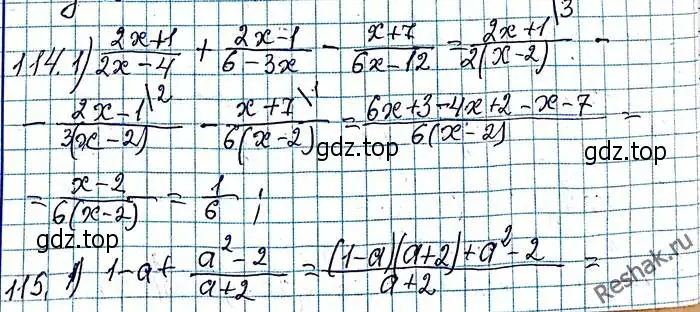 114. 1) (2x+1)/(2x-4) + (2x-1)/(6-3x) - (x+7)/(6x-12) = (2x+1\3)/(2(x-2)) -
- (2x-1\2)/(3(x-2)) - (x+7\1)/(6(x-2)) = (6x+3-4x+2-x-7)/(6(x-2)) =
gdz.top
gdz.top
= (x-2)/(6(x-2)) = 1/6 ;
gdz.top
115. 1) 1-a+ (a²-2)/(a+2) = ((1-a)(a+2)+a²-2)/(a+2) =
Reshak.ru